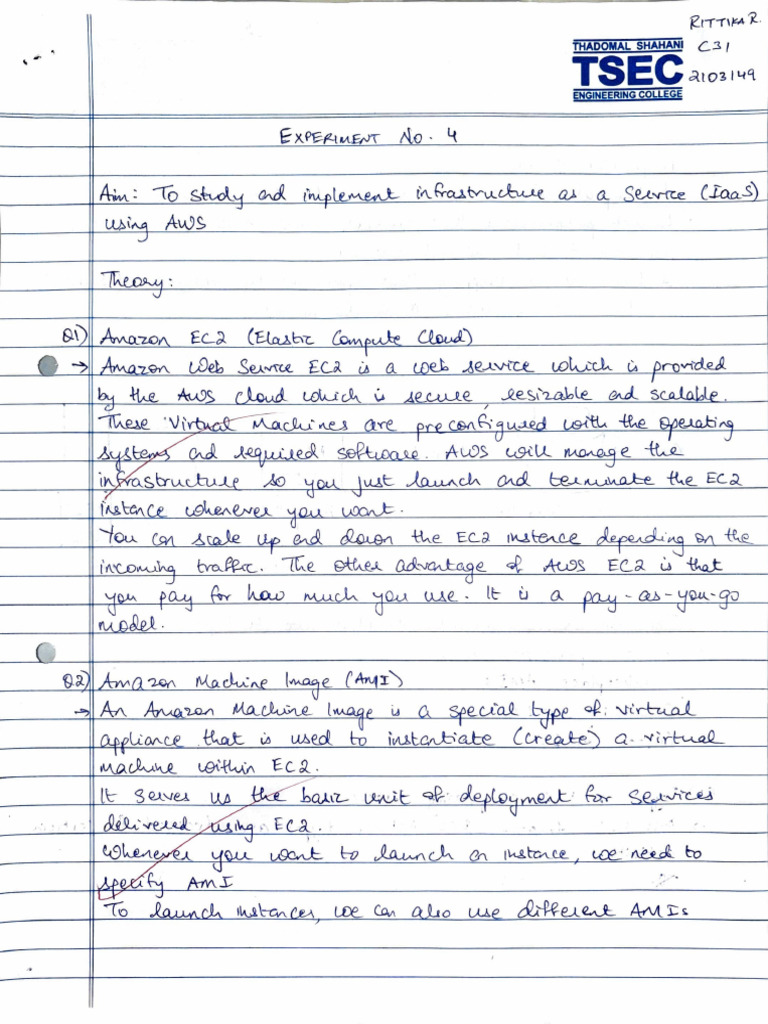 RITTIKA R.
THADOMAL SHAHANI
C31
TSEC
2103149
ENGINEERING COLLEGE
EXPERIMENT NO. 4
Aim: To study and implement infrastructure as a Service (IaaS)
using AWS
Theory:
Q1) Amazon EC2 (Elastic Compute Cloud)
→ Amazon Web Service EC2 is a web service which is provided
by the AWS cloud which is secure, resizable and scalable.
These Virtual Machines are preconfigured with the operating
systems and required software. AWS will manage the
infrastructure so you just launch and terminate the EC2
instance whenever you want.
You can scale up and down the EC2 instance depending on the
incoming traffic. The other advantage of AWS EC2 is that
you pay for how much you use. It is a pay-as-you-go
model.
Q2) Amazon Machine Image (AMI)
→ An Amazon Machine Image is a special type of virtual
appliance that is used to instantiate (create) a virtual
machine within EC2.
It serves us the basic unit of deployment for services
delivered using EC2.
Whenever you want to launch an instance, we need to
specify AMI
To launch instances, we can also use different AMIs